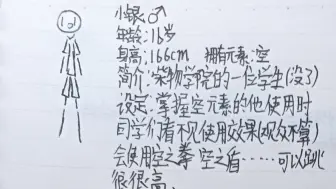 小银:♂
年龄:16岁
身高:166cm 拥有元素:空
简介:宋物学院的一位学生(没了)
设定:掌握空元素的他使用时
同学们看不见使用效果(观众不算)
会使用空之拳 空之盾……可以跳
很很高。